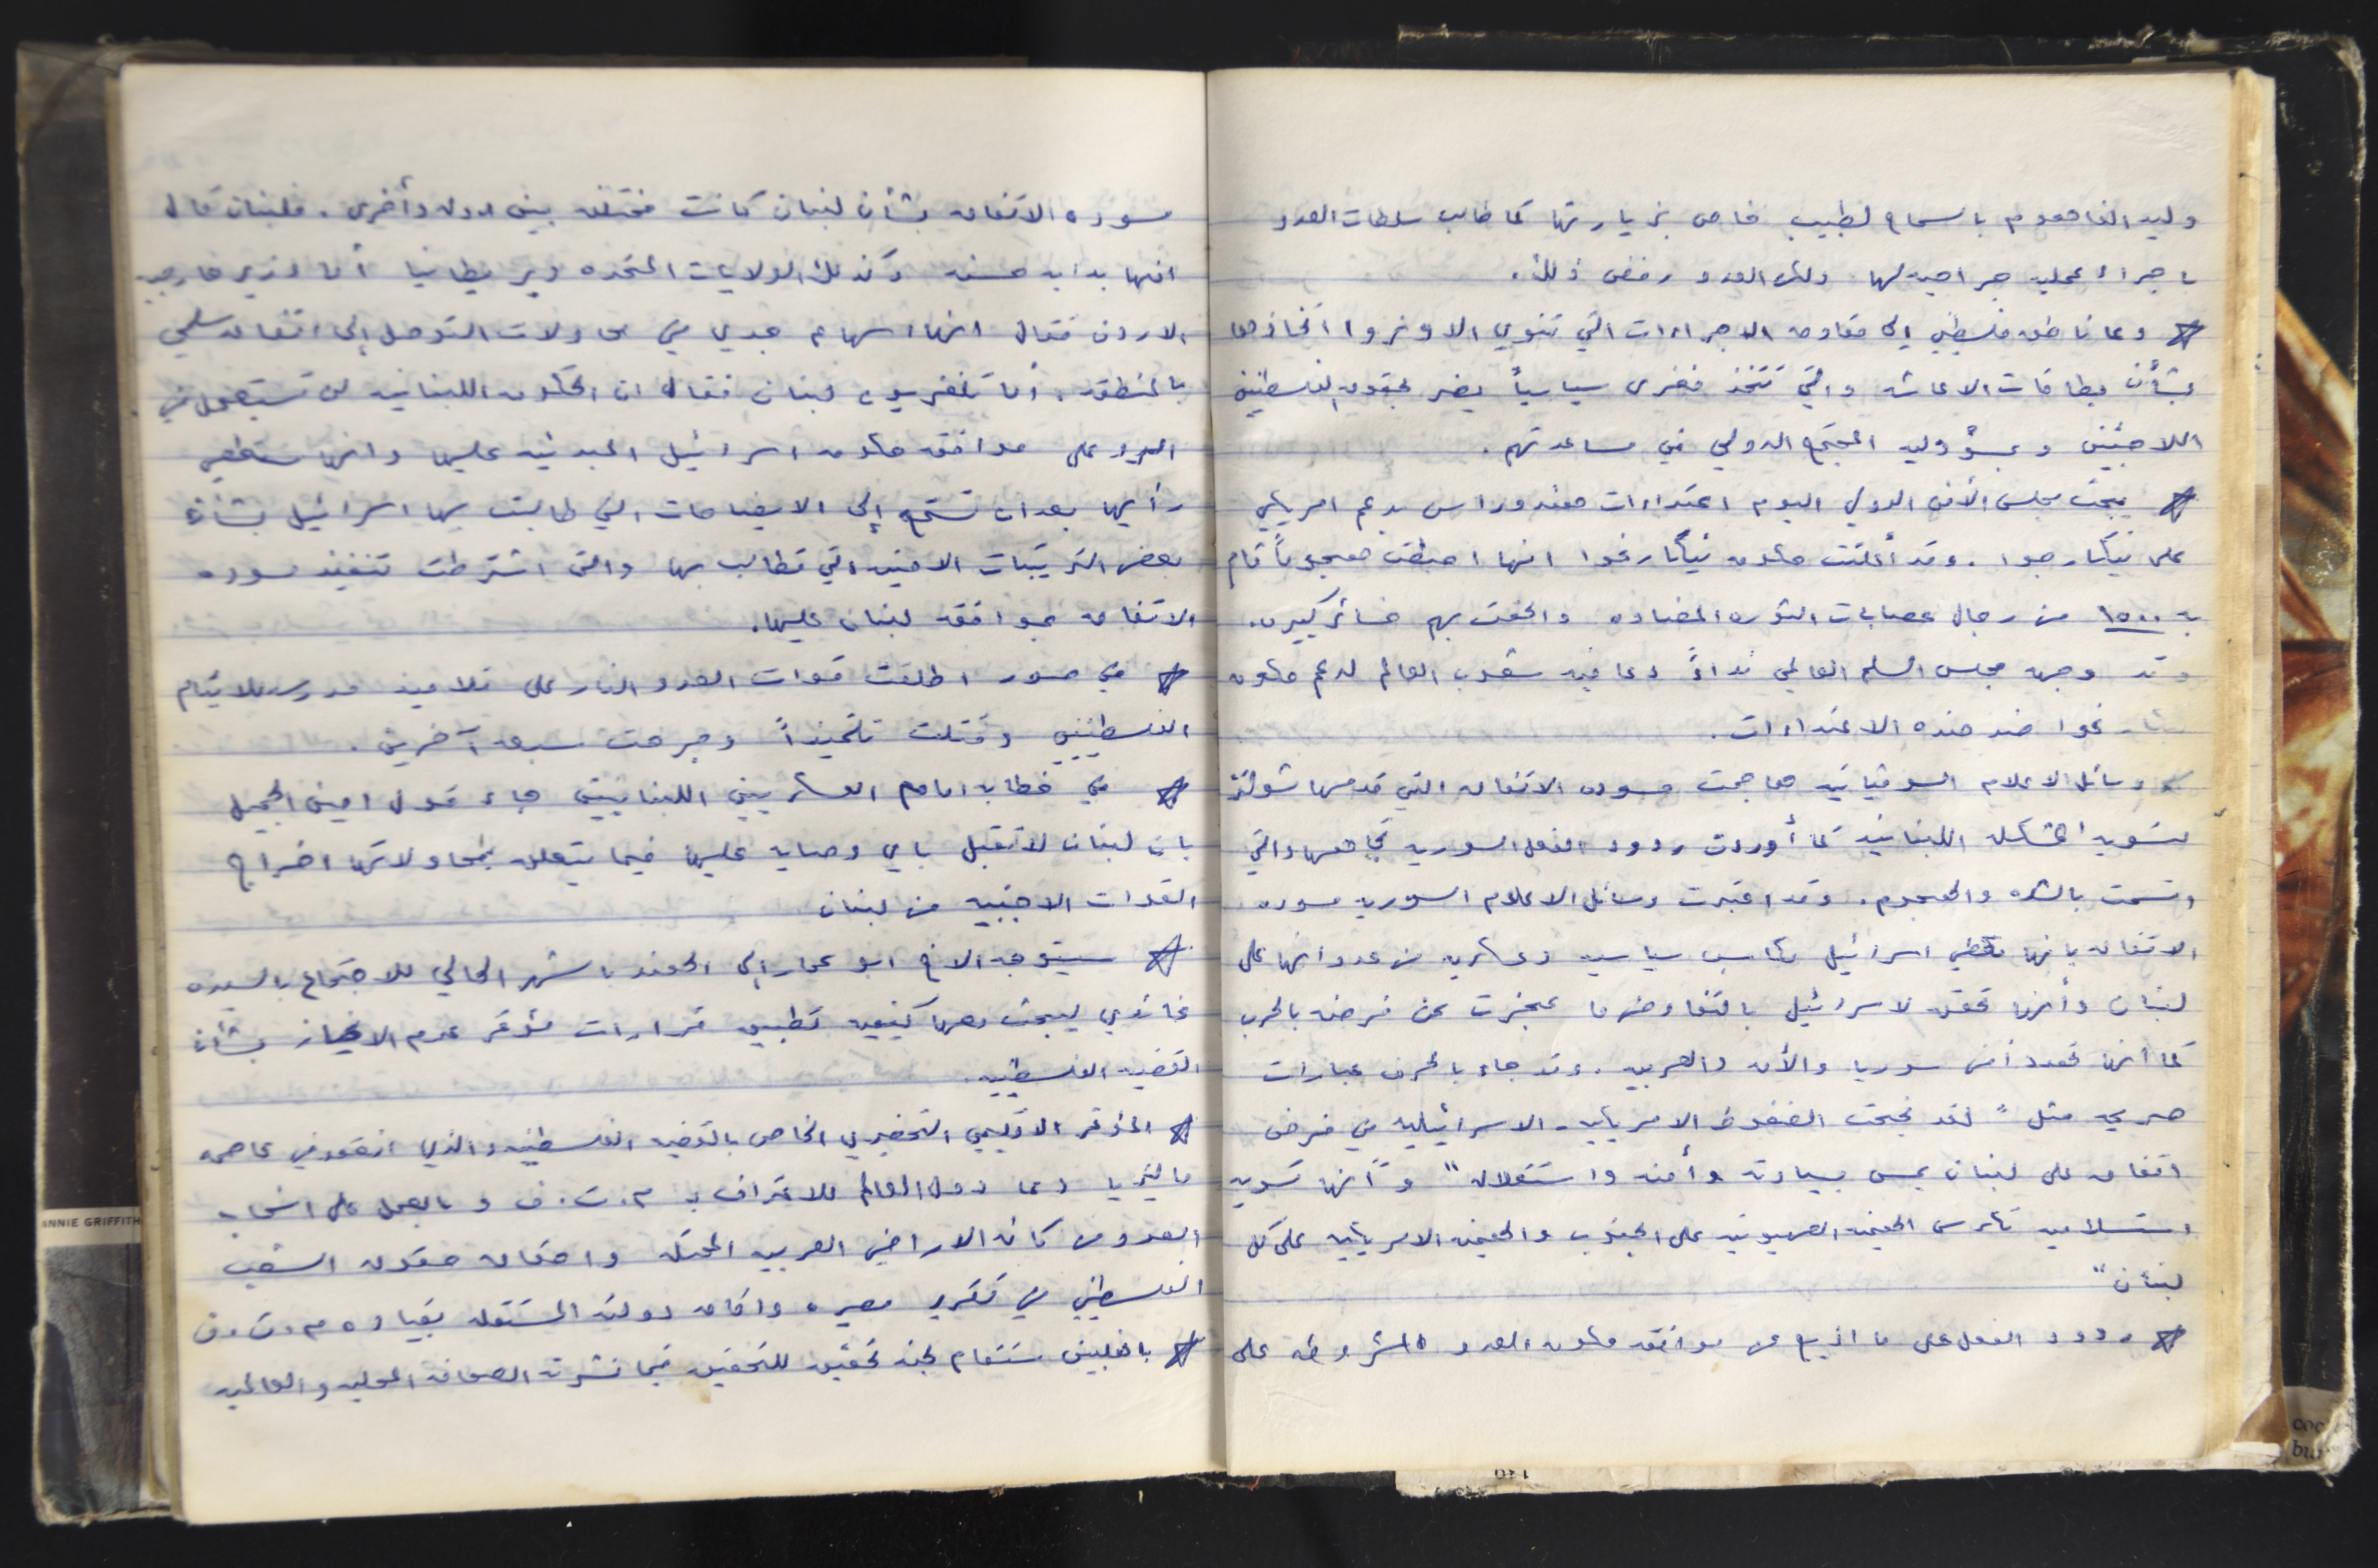 وليد الفاهوم بالسماح لطبيب خاص بزيارتها كما طالب سلطات العدو
باجراء عملية جراحية لها ولكن العدو رفض ذلك.
ودعا ناطق فلسطيني الى مقاومة الاجراءات التي تنوي الاونروا اتخاذها
بشأن بطاقات الاعاشة والتي تتخذ مغزى سياسياً يضر بحقوق الفلسطينيين
اللاجئين وبمسؤولية المجتمع الدولي في مساعدتهم.
يبحث مجلس الأمن الدولي اليوم اعتداءات هندوراس بدعم امريكي
على نيكارجوا. وقد أعلنت حكومة نيكارغوا انها احبطت هجوماً قام
به ١٥٠٠ من رجال عصابات الثورة المضادة والحقت بهم خسائر كبيرة.
وقد وجه مجلس السلم العالمي نداءً دعا فيه شعوب العالم لدعم حكومة
نيكارغوا ضد هذه الاعتداءات.
وسائل الاعلام السوفياتية هاجمت مسودة الاتفاق التي قدمها شولتز
لتسوية المشكلة اللبنانية كما أوردت ردود الفعل السورية تجاهها والتي
اتسمت بالشدة والهجوم. وقد اعتبرت وسائل الاعلام السورية مسودة
الاتفاق بانها تعطي اسرائيل مكاسب سياسية وعسكرية من عدوانها على
لبنان وأنها تحقق لاسرائيل بالتفاوض ما عجزت عن فرضه بالحرب
كما أنها تهدد أمن سوريا والأمة العربية. وقد جاء بالحرف عبارات
صريحة مثل " لقد نجحت الضغوط الامريكية - الاسرائيلية في فرض
اتفاق على لبنان يمس بسيادته وأمنه واستقلاله " و "أنها تسوية
استسلامية تكرس الهيمنة الصهيونية على الجنوب والهيمنة الامريكية على كل
لبنان"
ردود الفعل على ما اذيع عن موافقة حكومة العدو المشروطة على
مسودة الاتفاق بشأن لبنان كانت مختلفة بين دولة وأخرى. فلبنان قال
انها بداية حسنة وكذلك الولايات المتحدة وبريطانيا أما وزير خارجية
الاردن فقال انها اسهام جدي في محاولات التوصل إلى اتفاق سلمي
بالمنطقة. أما تلفزيون لبنان فقال ان الحكومة اللبنانية لن تستعجل في
الرد على موافقة حكومة اسرائيل المبدئية عليها وانها ستعطي
رأيها بعد ان تستمع إلى الايضاحات التي طالبت بها اسرائيل بشأن
بعض الترتيبات الامنية التي تطالب بها والتي اشترطت تنفيذ مسودة
الاتفاق بموافقة لبنان عليها.
في صور اطلقت قوات العدو النار على تلاميذ مدرسة للايتام
الفلسطينيين وقتلت تلميذاً وجرحت سبعة آخرين.
في خطابه امام العسكريين اللبنانيين جاء قول امين الجميل
بان لبنان لا تقبل باي وصاية عليها فيما يتعلق بمحاولاتها اخراج
القوات الاجنبية من لبنان
سيتوجه الاخ ابو عمار إلى الهند بالشهر الحالي للاجتماع بالسيدة
غاندي ليبحث معها كيفية تطبيق قرارات مؤتمر عدم الانحياز بشأن
القضية الفلسطينية.
المؤتمر الاقليمي التحضيري الخاص بالقضية الفلسطينية والذي انعقد في عاصمة
ماليزيا دعا دول العالم للاعتراف بـ م.ت.ف وبالعمل على انسحاب
العدو من كافة الاراضي العربية المحتلة واحقاق حقوق الشعب
الفلسطيني في تقرير مصيره واقامة دولته المستقلة بقيادة م.ت.ف
بالفلبين ستقام لجنة تحقيق للتحقيق فيما نشرته الصحافة المحلية والعالمية
ANNIE GRIFFITH